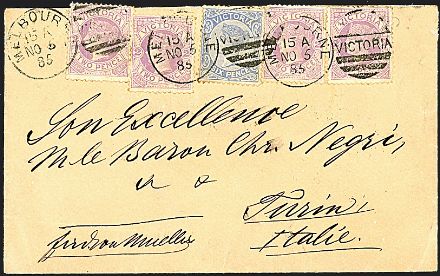 MELBOURNE
15 A
NO 5
85
VICTORIA
TWO PENCE
VICTORIA
TWO PENCE
MELBOURNE
15 A
NO 5
85
VICTORIA
SIX PENCE
MELBOURNE
15 A
NO 5
85
VICTORIA
Son Excellence
M le Baron Chr. Negri,
&
Turin,
Italie.
Ferd von Mueller